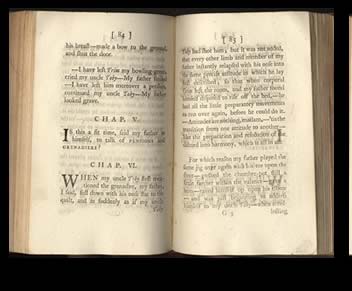 [ 84 ]
his breast—made a bow to the ground,
and shut the door.
—I have left Trim my bowling-green,
cried my uncle Toby—My father smiled
—I have left him moreover a pension,
continued my uncle Toby—My father
looked grave.
CHAP. V.
IS this a fit time, said my father to
himself, to talk of PENSIONS and
GRENADIERS?
CHAP. VI.
WHEN my uncle Toby first men-
tioned the grenadier, my father,
I said, fell down with his nose flat to the
quilt, and as suddenly as if my uncle
Toby
[ 85 ]
Toby had shot him; but it was not added,
that every other limb and member of my
father instantly relapsed with his nose into
the same precise attitude in which he lay
first described; so that when corporal
Trim left the room, and my father found
himself disposed to rise off the bed,—he
had all the little preparatory movements
to run over again, before he could do it.
—Attitudes are nothing, madam,—'tis the
transition from one attitude to another—
like the preparation and resolution of the
discord into harmony, which is all in all.
For which reason my father played the
same jig over again with his toe upon the
floor—pushed the chamber-pot still a
little farther within the valance—
hem—raised himself up upon his elbow
—and was just beginning to address
himself to my uncle Toby—when
G 3